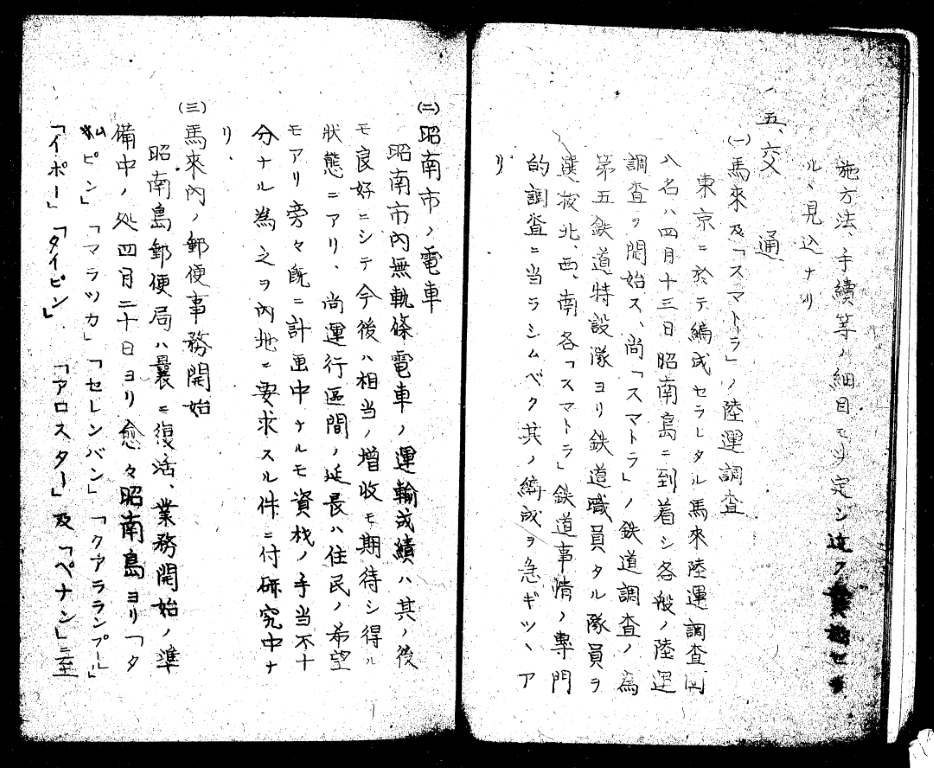 施方法、手續等ノ細目モ決定シ遠ク實施セラ
ルヽ見込ナリ
五、交通
(一)馬來及「スマトラ」ノ陸運調査
東京ニ於テ編成セラレタル馬來陸運調査団
八名ハ四月十三日昭南島ニ到着シ各般ノ陸運
調査ヲ開始ス、尚「スマトラ」ノ鉄道調査ノ為
第五鉄道特設隊ヨリ鉄道職員タル隊員ヲ
選抜北、西、南各「スマトラ」鉄道事情ノ専門
的調査ニ当ラシムベク其ノ編成ヲ急ギツヽア
リ
(二)昭南市ノ電車
昭南市內無軌條電車ノ運輸成績ハ其ノ後
モ良好ニシテ今後ハ相当ノ増收モ期待シ得ル
狀態ニアリ、尚運行區間ノ延長ハ住民ノ希望
モアリ旁々既ニ計画中ナルモ資材ノ手当不十
分ナル為之ヲ內地ニ要求スル件ニ付研究中ナ
リ、
(三)馬來內ノ郵便事務開始
昭南島郵便局ハ曩ニ復活、業務開始ノ準
備中ノ処四月二十日ヨリ愈々昭南島ヨリ「タ
ムピン」「マラツカ」「セレンバン」「クアラランプール」
「イポー」「タイピン」「アロスター」及「ペナン」ニ至